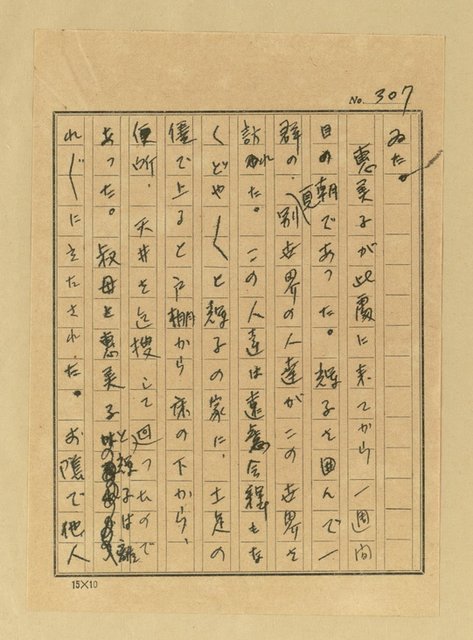 No. 307
ゐた。
惠美子が此處に来てから一週間
目の朝であった。輝子を囲んで一
群の、夏、別世界の人達がこの世界を
訪れた。この人達は遠慮会釈もな
くどや〱と輝子の家に、土足の
儘で上ると戸棚から床の下から、
便所、天井を迄捜して廻ったので
あった。叔母と惠美子と輝子は離
れ〲にさたされた。お隣で他人
15×10